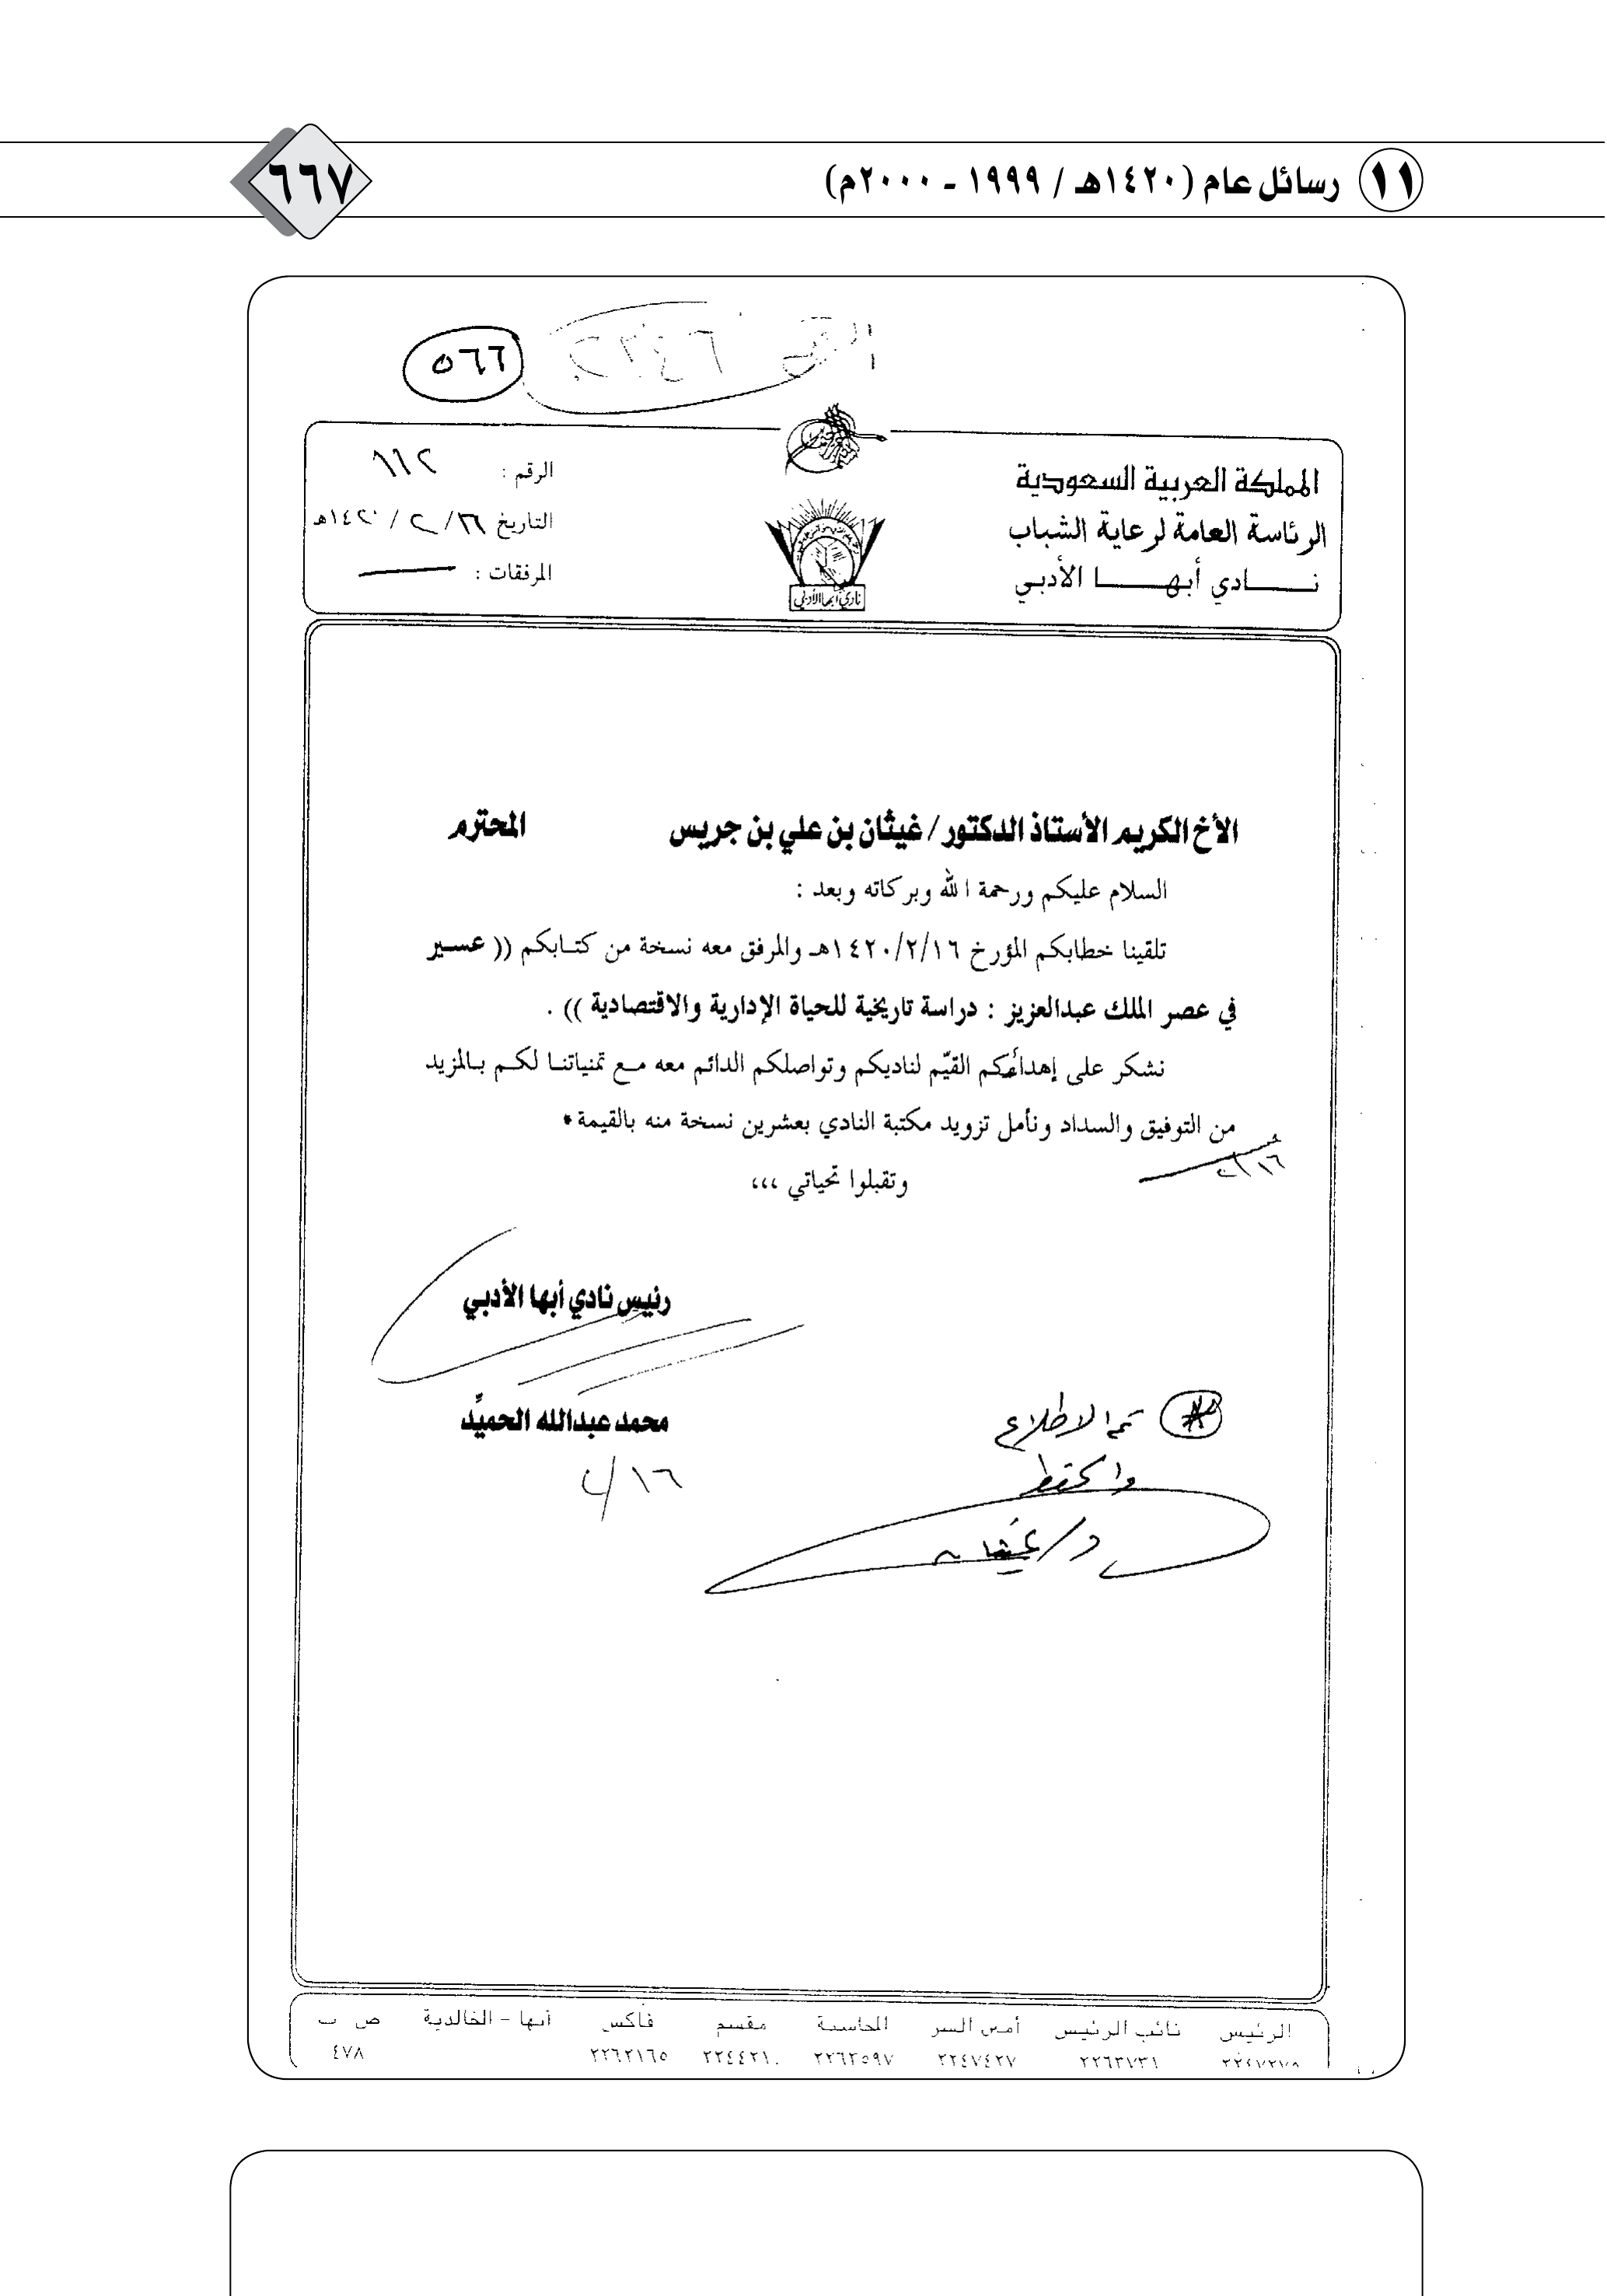 ١١ رسائل عام (١٤٢٠هـ / ١٩٩٩ - ٢٠٠٠م)
٦٦٧
٥٦٦
المملكة العربية السعودية
الرئاسة العامة لرعاية الشباب
نـــادي أبهـــا الأدبي
نادي أبها الأدبي
الرقم : ٦١٢
التاريخ ١٤٢٠/٢/٢٦هـ
المرفقات :
الأخ الكريم الأستاذ الدكتور/ غيثان بن علي بن جريس المحترم
السلام عليكم ورحمة الله وبركاته وبعد :
تلقينا خطابكم المؤرخ ١٤٢٠/٢/١٦هـ والمرفق معه نسخة من كتـابكم (( عسـير
في عصر الملك عبدالعزيز : دراسة تاريخية للحياة الإدارية والاقتصادية )) .
نشكر على إهدائكم القيّم لناديكم وتواصلكم الدائم معه مـع تمنياتنـا لكـم بـالمزيد
من التوفيق والسداد ونأمل تزويد مكتبة النادي بعشرين نسخة منه بالقيمة •
وتقبلوا تحياتي ،،،
رئيس نادي أبها الأدبي
محمد عبدالله الحميّد
تم الاطلاع
والحفظ
د/غيثان
الرئيس نائب الرئيس أمين السر المحاسبة مقسم فاكس أبها - الخالدية ص ب
٢٢٦٣٧٣١ ٢٢٤٧٤٢٧ ٢٢٦٢٥٩٧ ٢٢٤٤٢١٠ ٢٢٦٢١٦٥ ٤٧٨